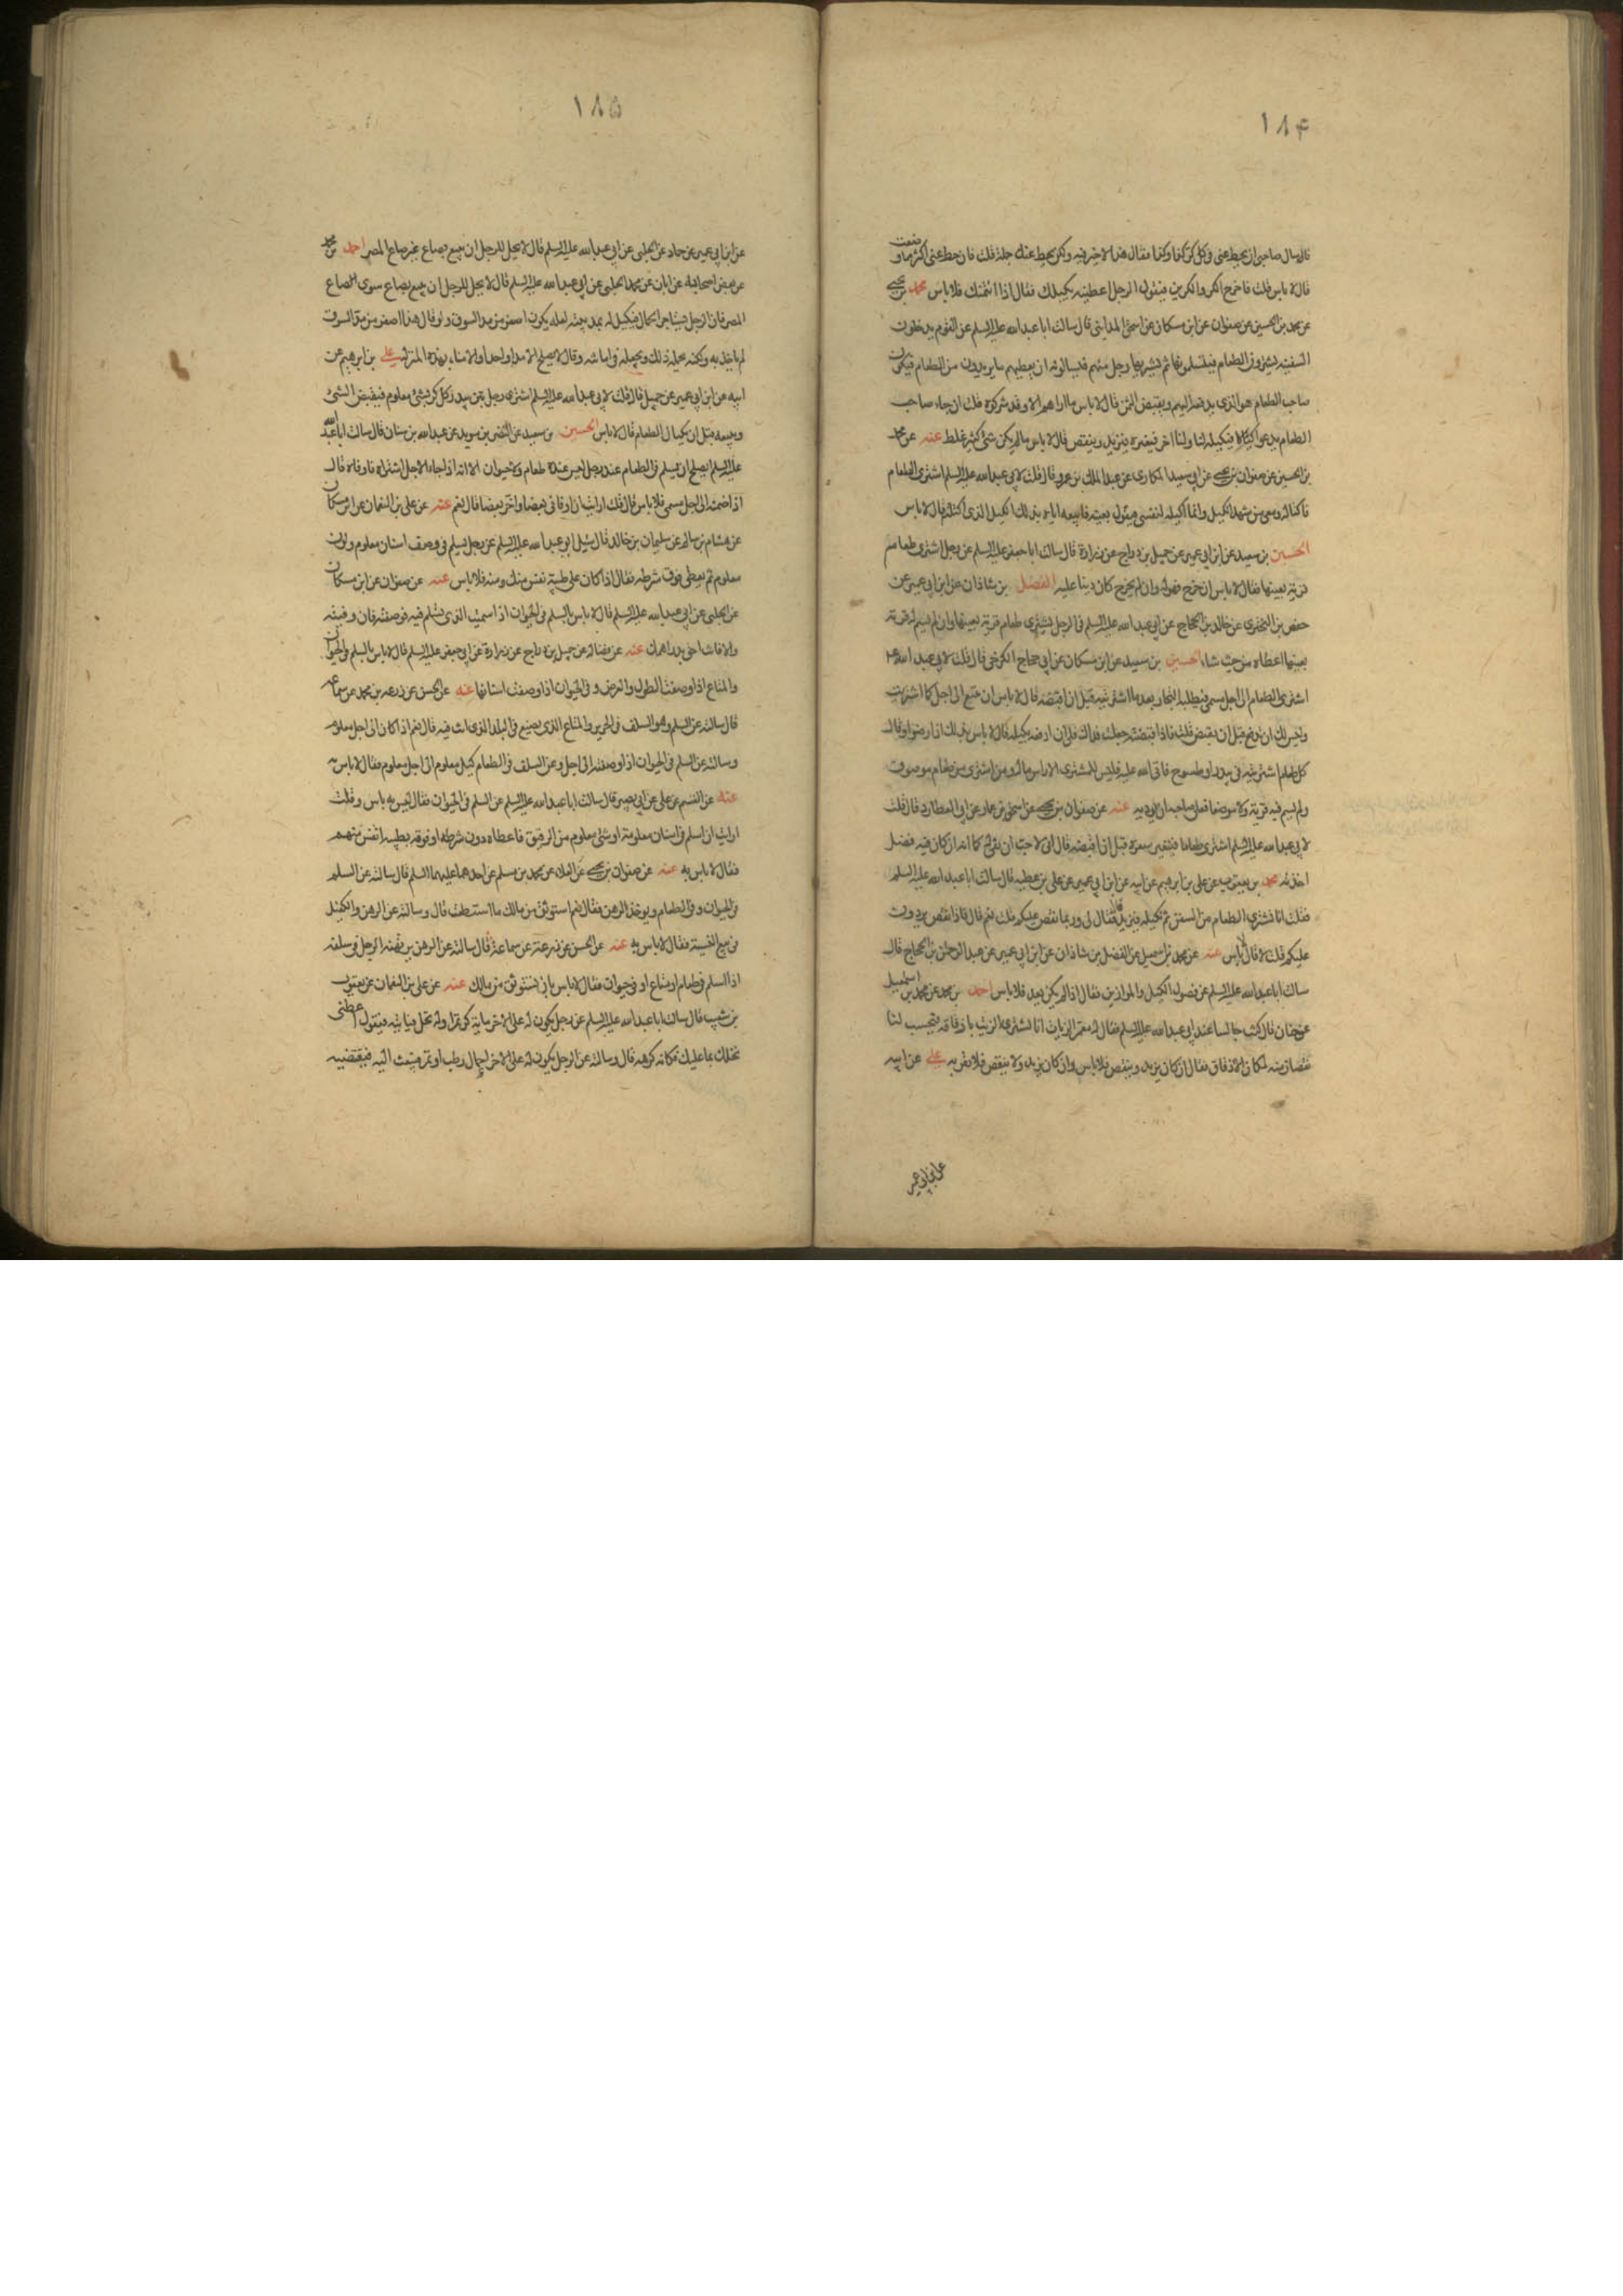 ١٨۴
قال سال صاحبي ان يحط عني في كل كر كذا وكذا فقال هذا لا خير فيه ولكن يحط عنك جملة قلت فان حط عني اكثر مما وضعت
قال لا باس قلت فاخرج الكر والكرين فيقول الرجل اعطنيه بكيلك فقال اذا ائتمنك فلا باس محمد بن يحيى
عن محمد بن الحسين عن صفوان عن ابن مسكان عن اسحق المدايني قال سالت ابا عبد الله عليه السلم عن القوم يدخلون
السفينة يشترون الطعام فيتساومون بها ثم يشتريها رجل منهم فيسالونه ان يعطيهم ما يريدون من الطعام فيكون
صاحب الطعام هو الذي يدفعه اليهم ويقبض الثمن قال لا باس ما اراهم الا وقد شركوه قلت ان جاء صاحب
الطعام يدعو كيالا فيكيله لنا ولنا اجر فيعيره فيزيد وينقص قال لا باس ما لم يكن شئ كثير غلط عنه عن محمد
بن الحسين عن صفوان بن يحيى عن ابي سعيد المكاري عن عبد الملك بن عمرو قال قلت لابي عبد الله عليه السلم اشتري الطعام
فاكتاله ومعي من شهد الكيل وانما اكيله لنفسي فيقول بعنيه فابيعه اياه بذلك الكيل الذي اكتلته قال لا باس
الحسين بن سعيد عن ابن ابي عمير عن جميل بن دراج عن زرارة قال سالت ابا جعفر عليه السلم عن رجل اشترى طعام
قرية بعينها فقال لا باس ان خرج فهو له وان لم يخرج كان دينا عليه الفضل بن شاذان عن ابن ابي عمير عن
حفص بن البختري عن خالد بن الحجاج عن ابي عبد الله عليه السلم في الرجل يشتري طعام قرية بعينها وان لم يسم له قرية
بعينها اعطاه من حيث شاء الحسين بن سعيد عن ابن مسكان عن ابي حجاج الكرخي قال قلت لابي عبد الله ع
اشتري الطعام الى اجل مسمى فيطلبه التجار بعد ما اشتريته قبل ان اقبضه قال لا باس ان تبيع الى اجل كما اشتريت
وليس لك ان تدفع قبل ان تقبض قلت فاذا قبضته جعلت فداك فلي ان ادفعه بكيله قال لا باس بذلك اذا رضوا وقال
كل طعام اشتريته في بيدر او طسوج فاتى الله عليه فليس للمشتري الا راس ماله ومن اشترى من طعام موصوف
ولم يسم فيه قرية ولا موضعا فعلى صاحبه ان يوديه عنه عن صفوان بن يحيى عن اسحق بن عمار عن ابي العطارد قال قلت
لابي عبد الله عليه السلم اشتري طعاما فيتغير سعره قبل ان اقبضه قال اني لاحب ان تفي له كما انه ان كان فيه فضل
اخذته محمد بن يعقوب عن علي بن ابرهيم عن ابيه عن ابن ابي عمير عن علي بن عطيه قال سالت ابا عبد الله عليه السلم
فقلت انا نشتري الطعام من السفن ثم نكيله فيزيد فقال لي وربما نقص عليكم قلت نعم قال فاذا نقص يردون
عليكم قلت لا قال لا باس عنه عن محمد بن اسمعيل عن الفضل بن شاذان عن ابن ابي عمير عن عبد الرحمن بن الحجاج قال
سالت ابا عبد الله عليه السلم عن فضول الكيل والموازين فقال اذا لم يكن تعد فلا باس احمد بن محمد عن محمد بن اسمعيل
عن حنان قال كنت جالسا عند ابي عبد الله عليه السلم فقال له معمر الزيات انا نشتري الزيت بازقاقه فتحسب لنا
نقصان منه لمكان الازقاق فقال ان كان يزيد وينقص فلا باس وان كان يزيد ولا ينقص فلا تقربه علي عن ابيه
عن ابن ابي عمير
١٨۵
عن ابن ابي عمير عن حماد عن الحلبي عن ابي عبد الله عليه السلم قال لا يحل للرجل ان يبيع بصاع غير صاع المصر احمد بن محمد
عن بعض اصحابه عن ابان عن محمد الحلبي عن ابي عبد الله عليه السلم قال لا يحل للرجل ان يبيع بصاع سوى الصاع
المصر فان الرجل يستاجر الحمال فيكيل له بمد بيته لعله يكون اصغر من مد السوق ولو قال هذا اصغر من مد السوق
لم ياخذ به ولكنه يحمله ذلك ويجعله في امانته وقال لا يصلح الا مدا واحدا والامناء بهذه المنزلة علي بن ابرهيم عن
ابيه عن ابن ابي عمير عن جميل قال قلت لابي عبد الله عليه السلم اشترى رجل تبن بيدر كل كر بشئ معلوم فيقبض الشئ
ويبيعه قبل ان يكتال الطعام قال لا باس الحسين بن سعيد عن النضر بن سويد عن عبد الله بن سنان قال سالت ابا عبد الله
عليه السلم ايصلح ان يسلم في الطعام عند رجل ليس عنده طعام ولا حيوان الا انه اذا جاء الاجل اشتراه فاوفاه قال
اذا ضمنه الى اجل مسمى فلا باس قال قلت ارايت ان اوفاني بعضا واخر بعضا قال نعم عنه عن علي بن النعمان عن ابن مسكان
عن هشام بن سالم عن سليمان بن خالد قال سئل ابو عبد الله عليه السلم عن رجل يسلم في وصف اسنان معلوم ولون
معلوم ثم يعطى فوق شرطه فقال اذا كان على طيبة نفس منك ومنه فلا باس عنه عن صفوان عن ابن مسكان
عن الحلبي عن ابي عبد الله عليه السلم قال لا باس بالسلم في الحيوان اذا سميت الذي تسلم فيه فوصفته فان وفيته
والا فانت احق بدراهمك عنه عن فضاله عن جميل بن دراج عن زرارة عن ابي جعفر عليه السلم قال لا باس بالسلم في الحيوان
والمتاع اذا وصفت الطول والعرض وفي الحيوان اذا وصفت اسنانها عنه عن الحسن عن زرعه بن محمد عن سماعه
قال سالته عن السلم وهو السلف في الحرير والمتاع الذي يصنع في البلد الذي انت فيه قال نعم اذا كان الى اجل معلوم
وسالته عن السلم في الحيوان اذا وصفته الى اجل وعن السلف في الطعام كيل معلوم الى اجل معلوم فقال لا باس به
عنه عن القسم عن علي عن ابي بصير قال سالت ابا عبد الله عليه السلم عن السلم في الحيوان فقال ليس به باس وقلت
ارايت ان اسلم في اسنان معلومة او شئ معلوم من الرقيق فاعطاه دون شرطه او فوقه بطيبة انفس منهم
فقال لا باس به عنه عن صفوان بن يحيى عن العلاء عن محمد بن مسلم عن احدهما عليهما السلم قال سالته عن السلم
في الحيوان وفي الطعام ويوخذ الرهن فقال نعم استوثق من مالك ما استطعت قال وسالته عن الرهن والكفيل
في بيع النسية فقال لا باس به عنه عن الحسن عن زرعة عن سماعة قال سالته عن الرهن يرتهنه الرجل في سلفه
اذا اسلم في طعام او متاع او في حيوان فقال لا باس بان تستوثق من مالك عنه عن علي بن النعمان عن يعقوب
بن شعيب قال سالت ابا عبد الله عليه السلم عن رجل يكون له على الاخر ماية كر تمرا وله نخل فياتيه فيقول اعطني
نخلك بما عليك فكانه كرهه قال وسالته عن الرجل يكون له على الاخر احمال رطب او تمر فيبعث اليه فيقتضيه